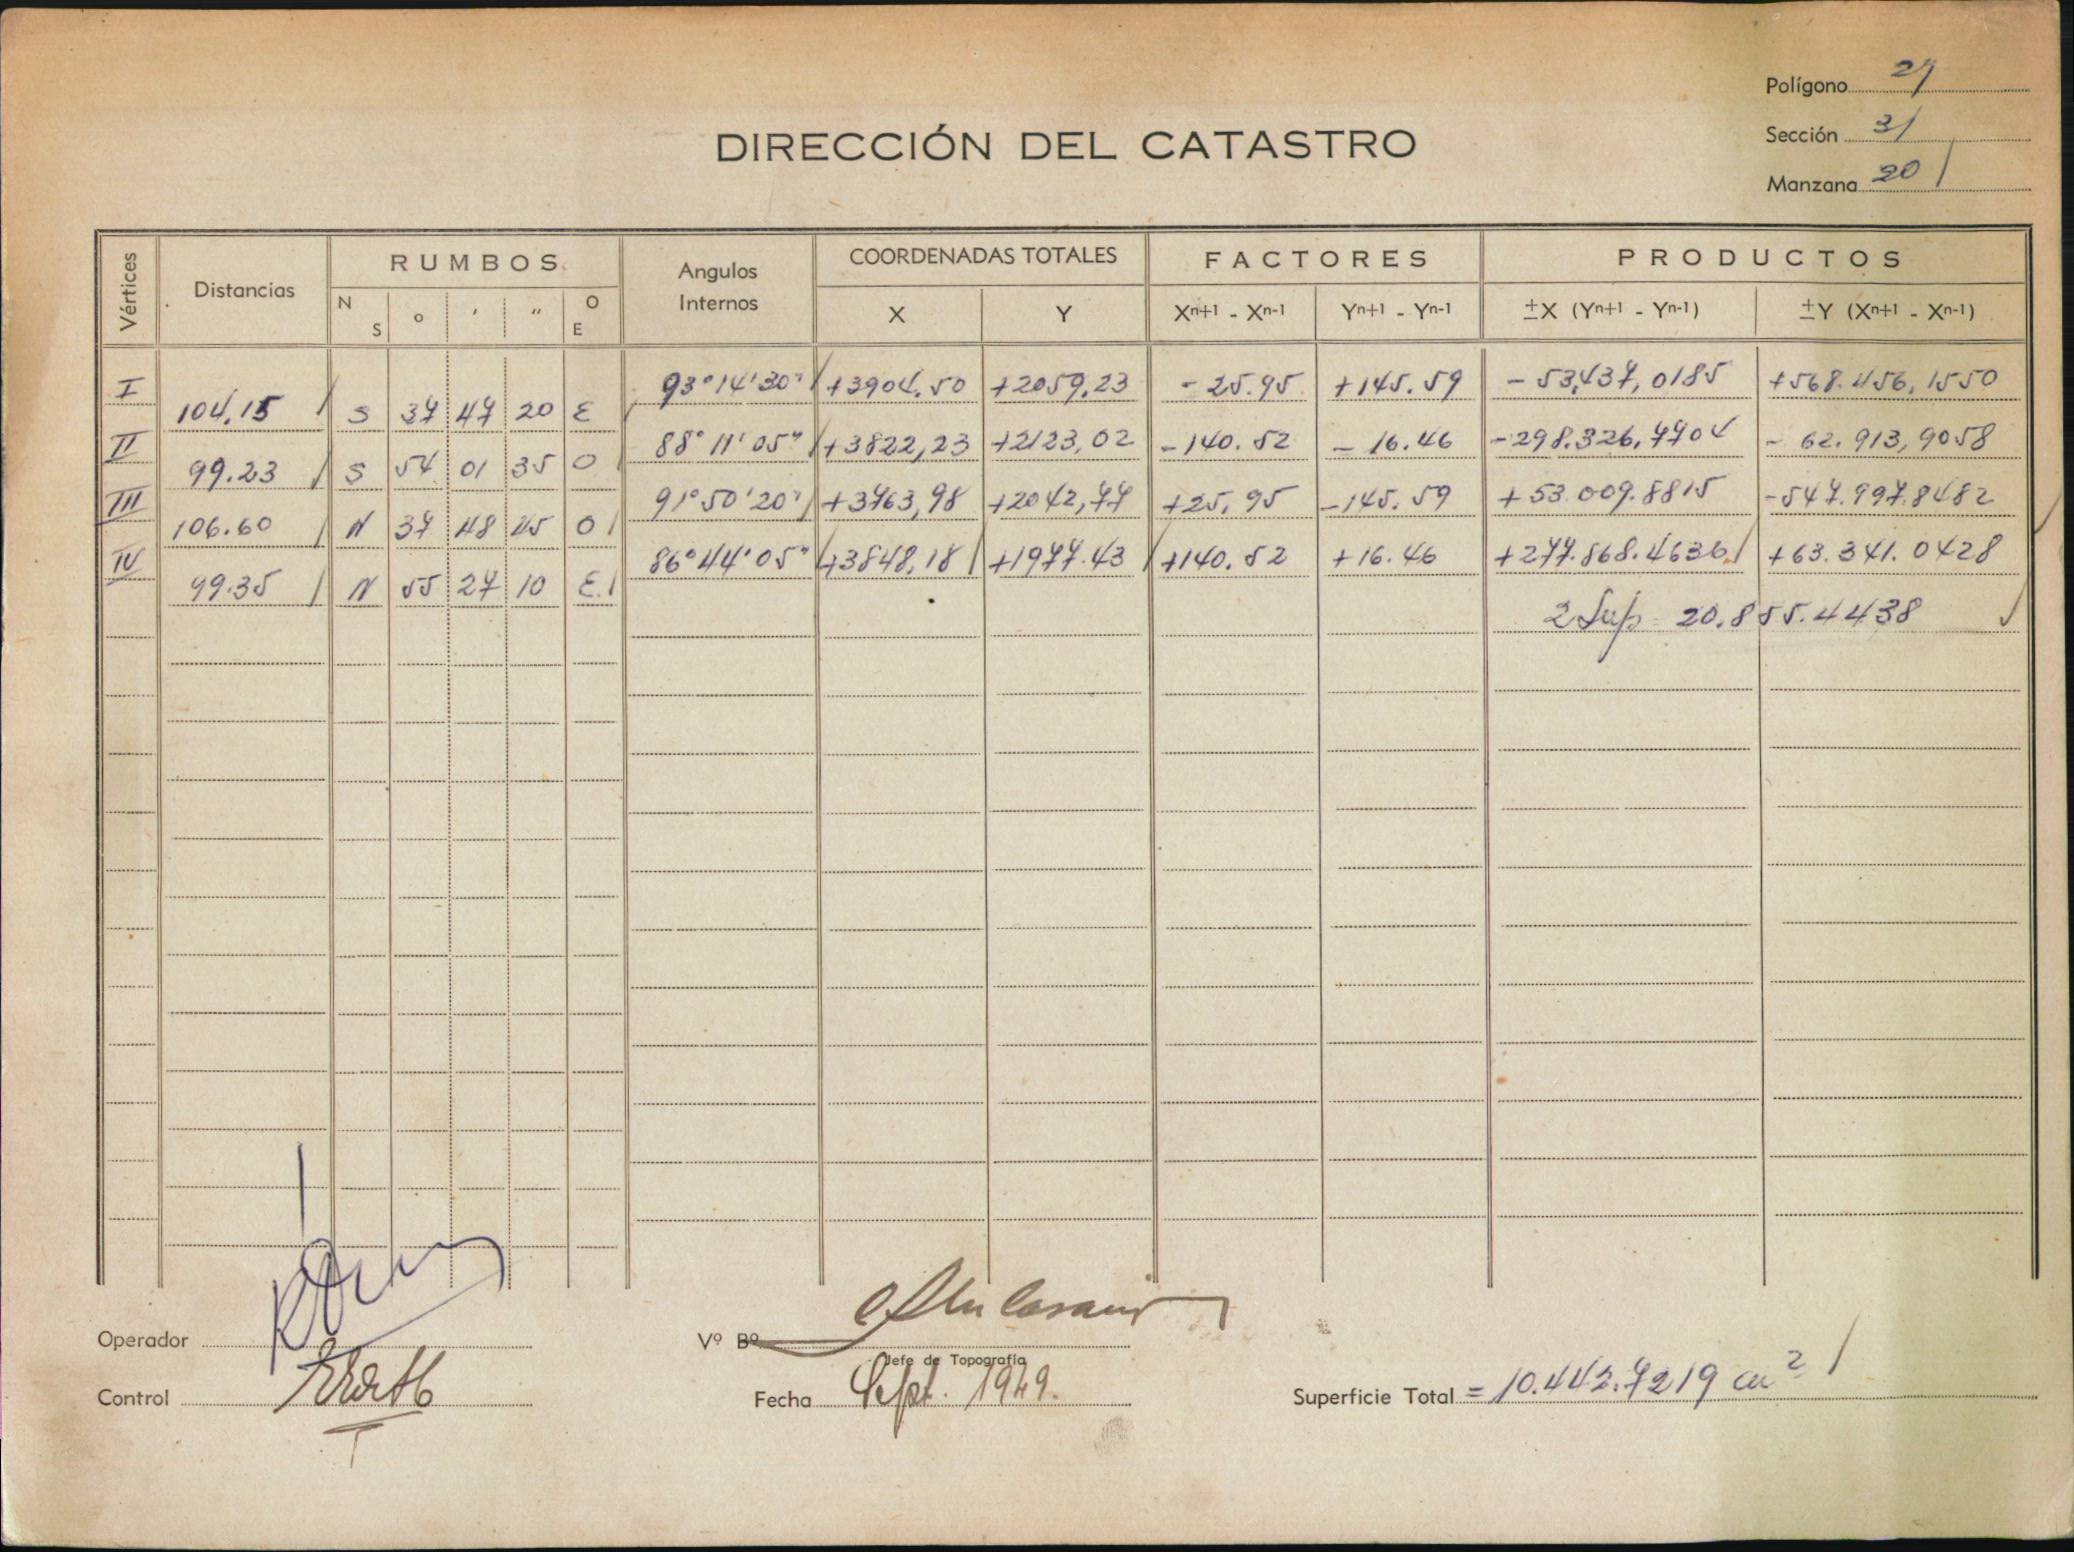 Polígono 27
DIRECCIÓN DEL CATASTRO
Sección 3
Manzana 20
Vértices Distancias RUMBOS Angulos Internos COORDENADAS TOTALES FACTORES PRODUCTOS
N S ° ' " O E X Y Xn+1 - Xn-1 Yn+1 - Yn-1 ±X (Yn+1 - Yn-1) ±Y (Xn+1 - Xn-1)
I 93°14'30" +3904.50 +2059.23 -25.95 +145.59 -53,437,0185 +568.456,1550
104.15 S 37 47 20 E
II 88°11'05" +3822,23 +2123,02 -140.52 -16.46 -298.326,7704 -62.913,9058
99.23 S 54 01 35 O
III 91°50'20" +3763,98 +2042,77 +25,95 -145.59 +53.009.8815 -547.997.8482
106.60 N 37 48 45 O
IV 86°44'05" +3848,18 +1977.43 +140.52 +16.46 +277.868.4636 +63.341.0428
99.35 N 55 27 10 E
2 Sup = 20.855.4438
Operador
Vº Bº
Jefe de Topografía
Control
Fecha Sept. 1949.
Superficie Total = 10.442.7219 m²